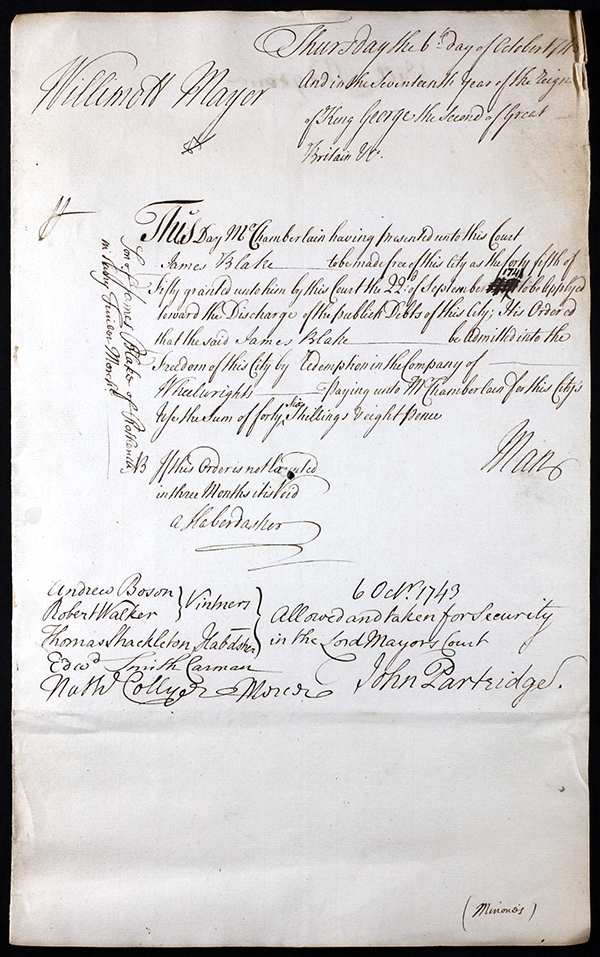 Thursday the 6th day of October 174
Willimott Mayor
And in the Seventeenth Year of the Reign
of King George the Second of Great
Britain &c.
This Day Mr Chamberlain having presented unto this Court
James Blake to be made free of this City as the forty fifth of
Fifty granted unto him by this Court the 22d of September 1741 to be applyed
toward the Discharge of the publick Debts of this City; It is Ordered
that the said James Blake be admitted into the
Freedom of this City by Redemption in the Company of
Wheelwrights Paying unto Mr Chamberlain for this City's
Use the Sum of forty Six Shillings & eight Pence
Son of James Blake of
in Taylor
Man
If this Order is not Executed
in three Months it is Void
a Haberdasher
Andrew Boson
Robert Walker
Vintners
Thomas Shackleton Habdsher
Edwd Smith Carman
Nathl Collyer Mercer
6 Octr. 1743
Allowed and taken for Security
in the Lord Mayors Court
John Partridge.
(Minories)